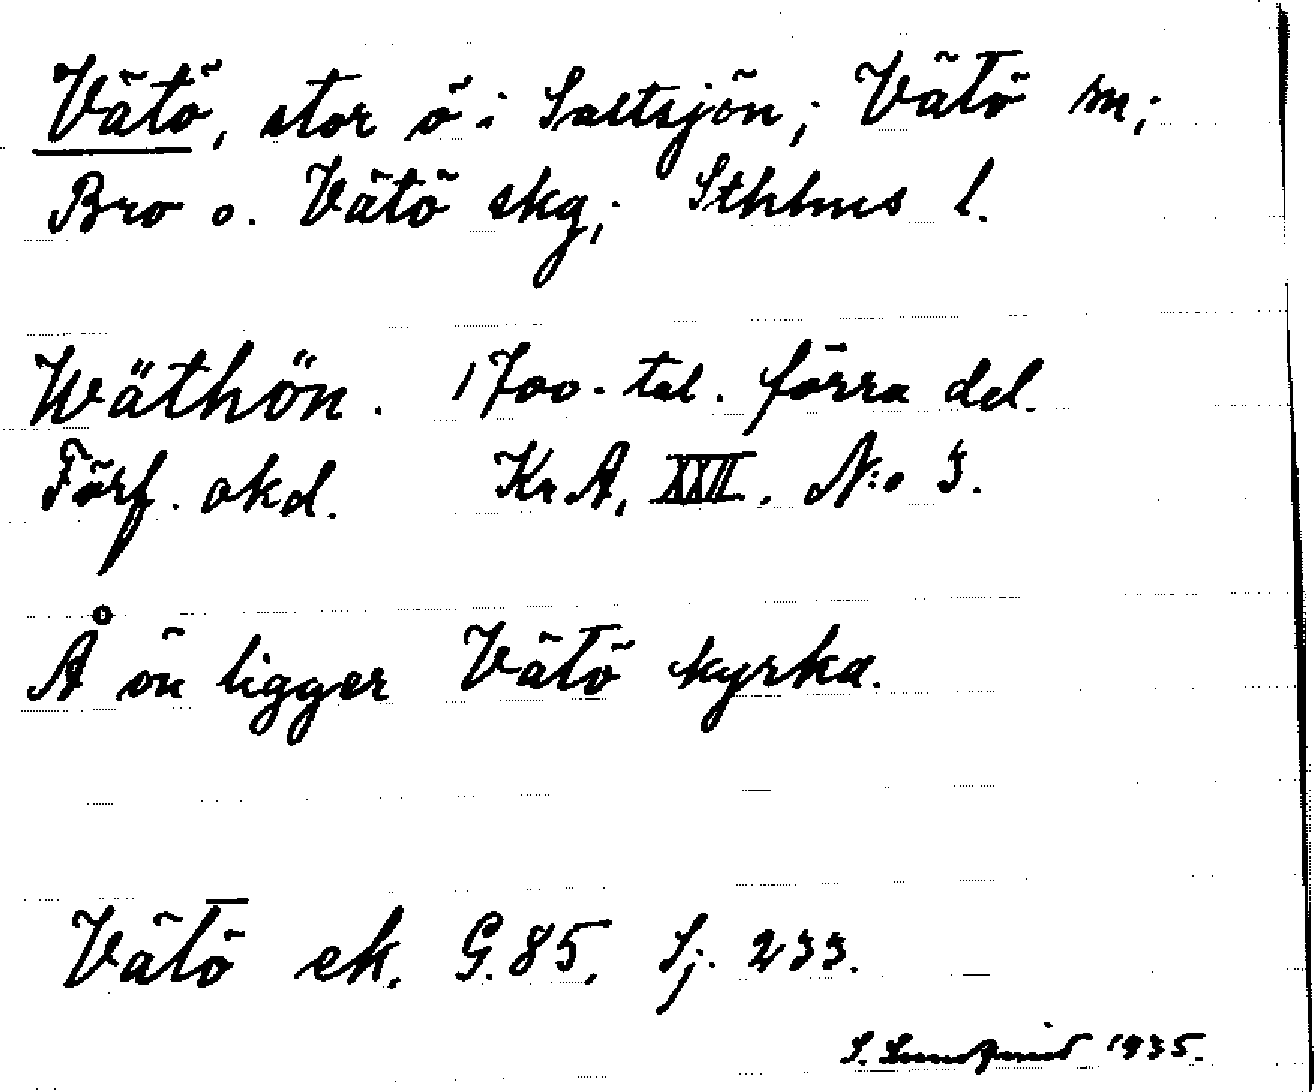 Vätö, stor ö i Saltsjön; Vätö sn;
Bro o. Vätö skg; Sthlms l.
Wäthön. 1700-tal. förra del.
Förf. okd. Kr.A, XXII. N:o 3.
Å ön ligger Vätö kyrka.
Vätö ek. G.85. Sj. 233.
S. Lundqvist 1935.